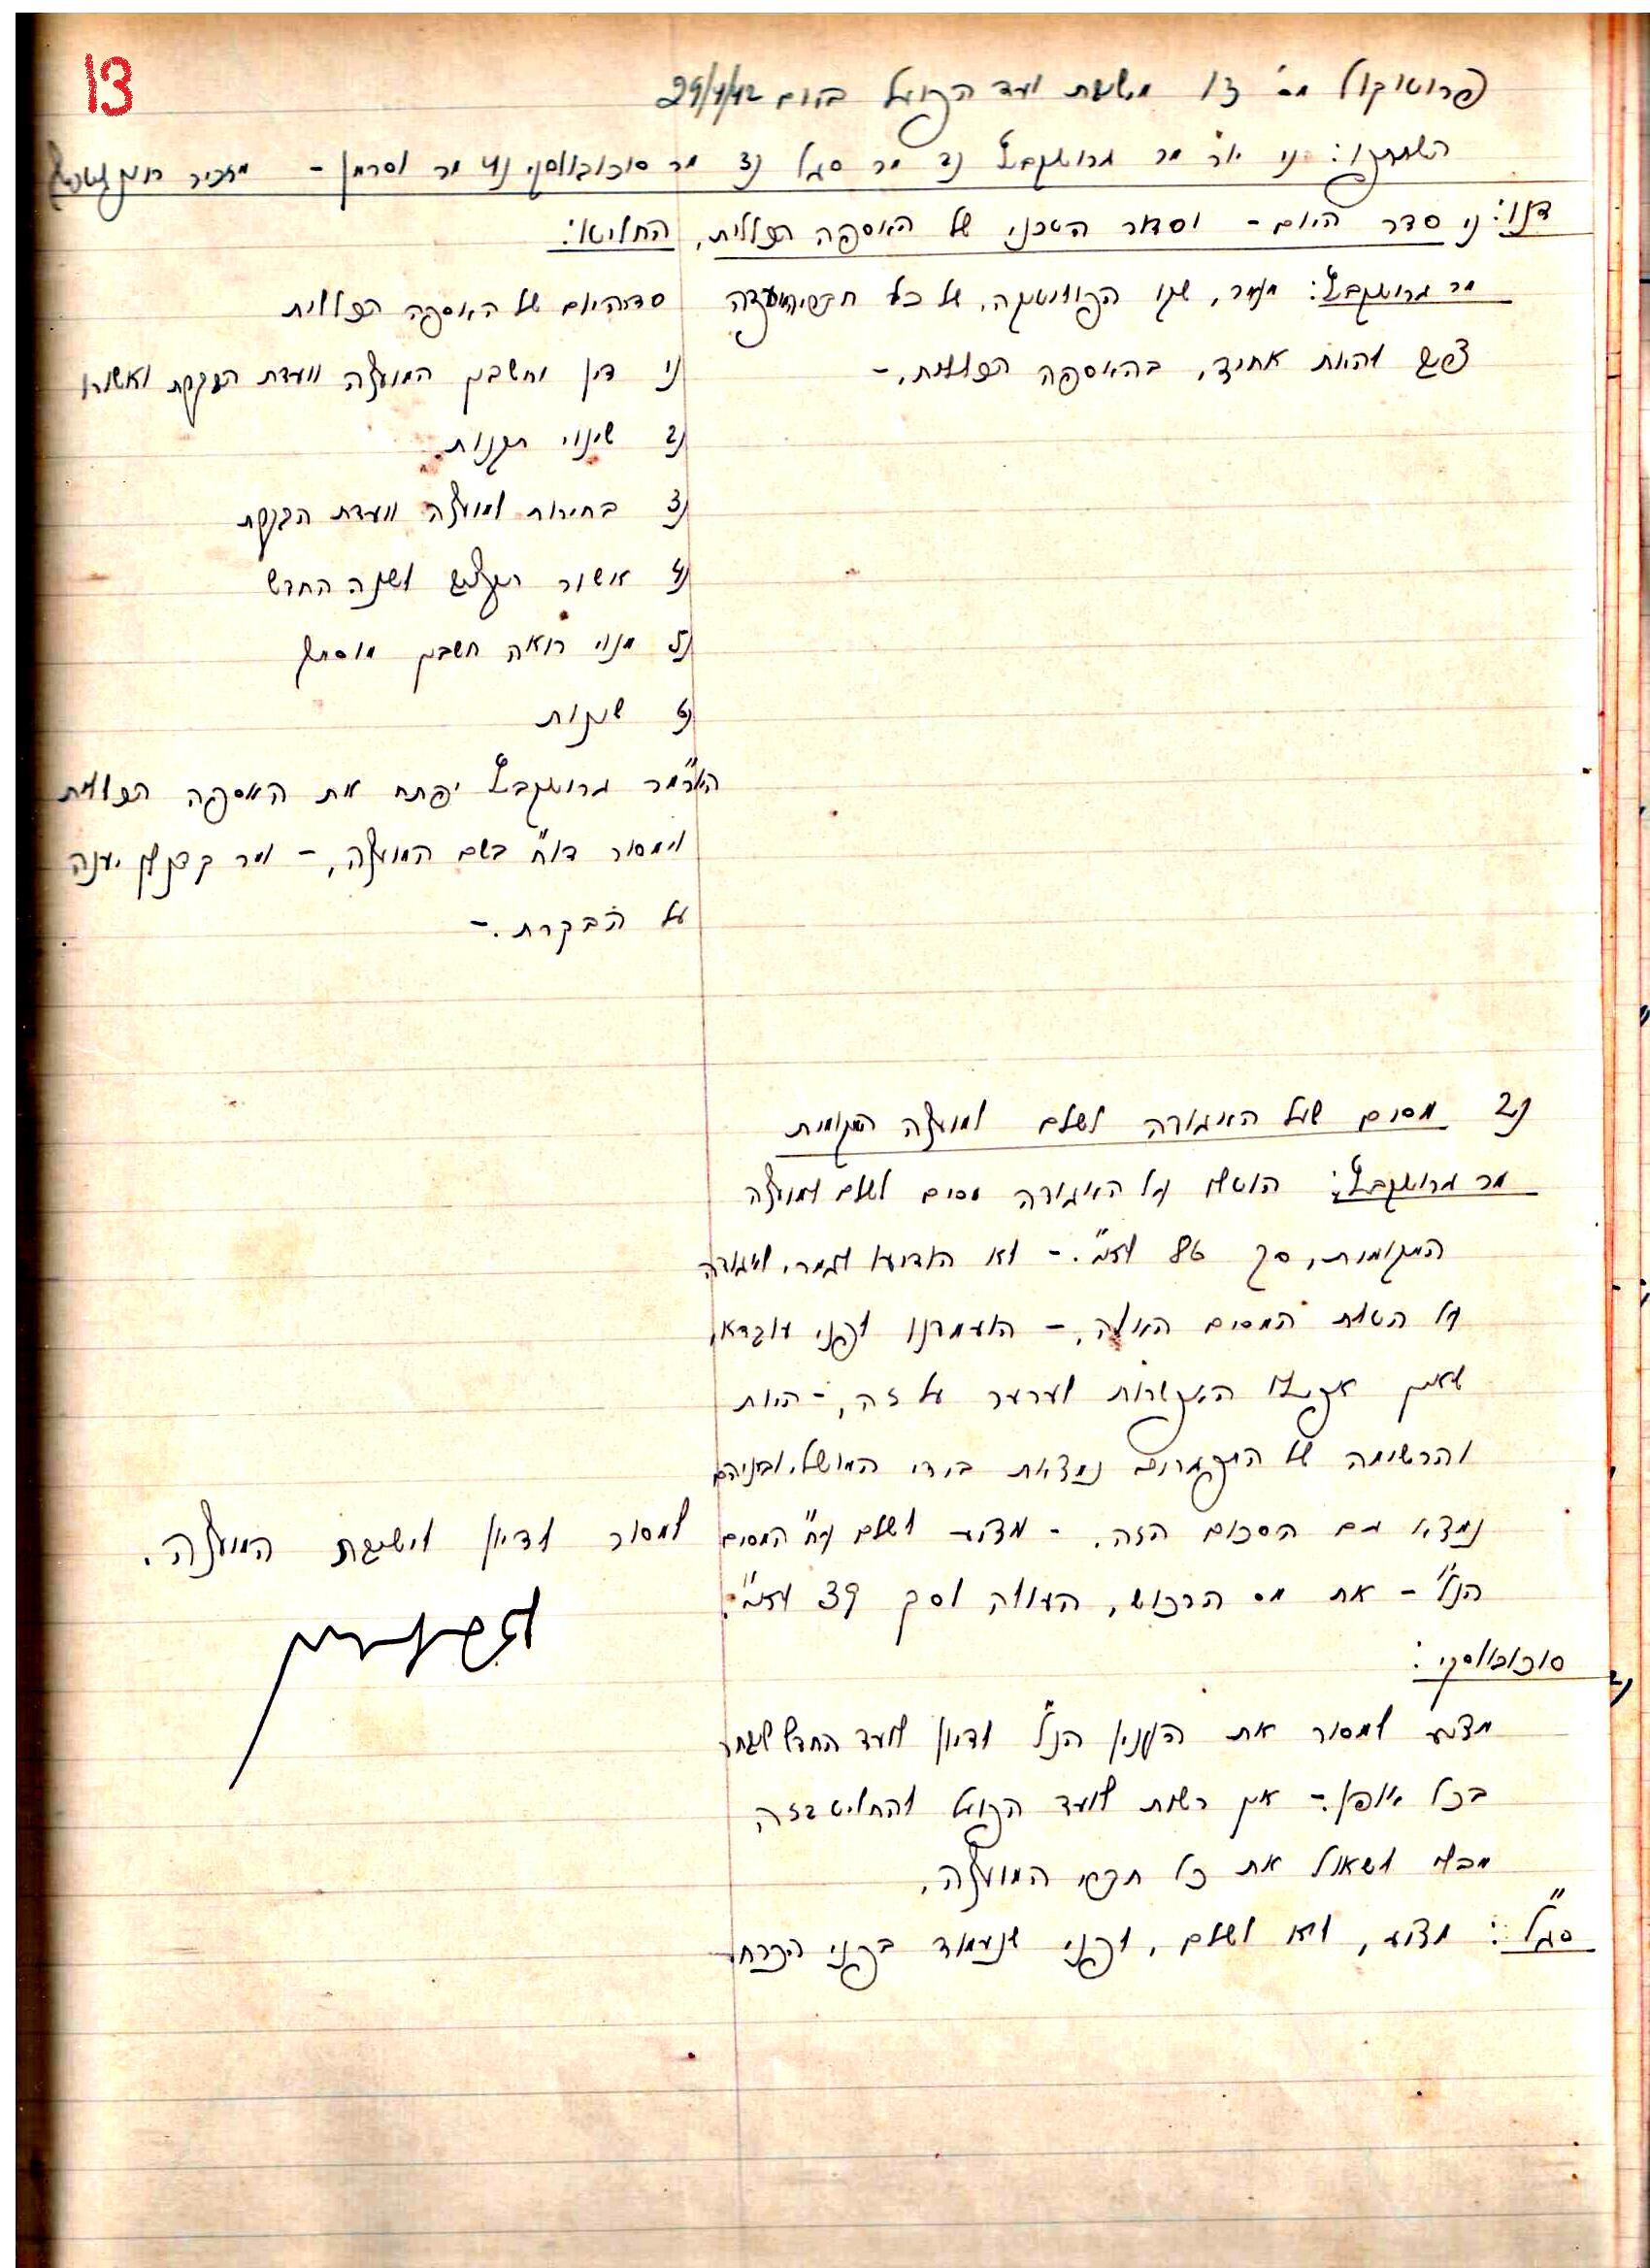 13
פרוטוקול מס' 13 מישיבת ועד הפועל ביום 29/4/42
השתתפו: 1) יו"ר מר גרושקביץ 2) מר סגל 3) מר סוכובולסקי 4) מר וסרמן - מזכיר
דנו: 1) סדר היום - וסדור הטכני של האספה הכללית,
מר גרושקביץ: הפוליטיקה, של כל חברי הועדה
צריך להיות אחיד, בהאספה הכללית.-
החליטו:
סדר היום של האספה הכללית
1) דין וחשבון המועצה וועדת הבקרת ואשורו
2) שינוי תקנות
3) בחירות למועצה וועדת הבקרת
4) אשור תקציב לשנה החדש
5) מנוי רואה חשבון מוסמך
6) שונות
היו"ר מר גרושקביץ יפתח את האספה הכללית
וימסור דו"ח בשם המועצה, - ומר קפלן יענה
על הבקרת.-
2) מסים שעל האגודה לשלם למועצה המקומית
מר גרושקביץ: הוטל על האגודה מסים לשלם למועצה
המקומית, סך 86 לא"י. - לא הודיעו לגמרי לאגודה
על הטלת המסים האלה, - הועמדנו לפני עובדא,
שאין אפילו האפשרות לערער על זה, - היות
והרשימה של נמצאת בידי המושל, וביניהם
נמצא גם הסכום הזה. - מציע לשלם ע"ח המסים
הנ"ל - את מס הרכוש, העולה לסך 39 לא"י.
למסור לדיון לישיבת המועצה.
סוכובולסקי:
מציע למסור את הענין הנ"ל לדיון לועד החדש שיבחר
בכל אופן - אין רשות לועד הפועל להחליט בזה
מבלי לשאול את כל חברי המועצה.
סג"ל: מציע, לא לשלם, לפני שנעמוד בפני הכרח